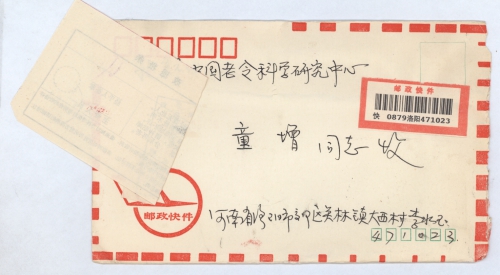 中国老令科学研究中心
邮政快件
快 0879洛阳471023
童增 同志 收
河南省洛阳市郊区关林镇大西村李
邮政快件
471023